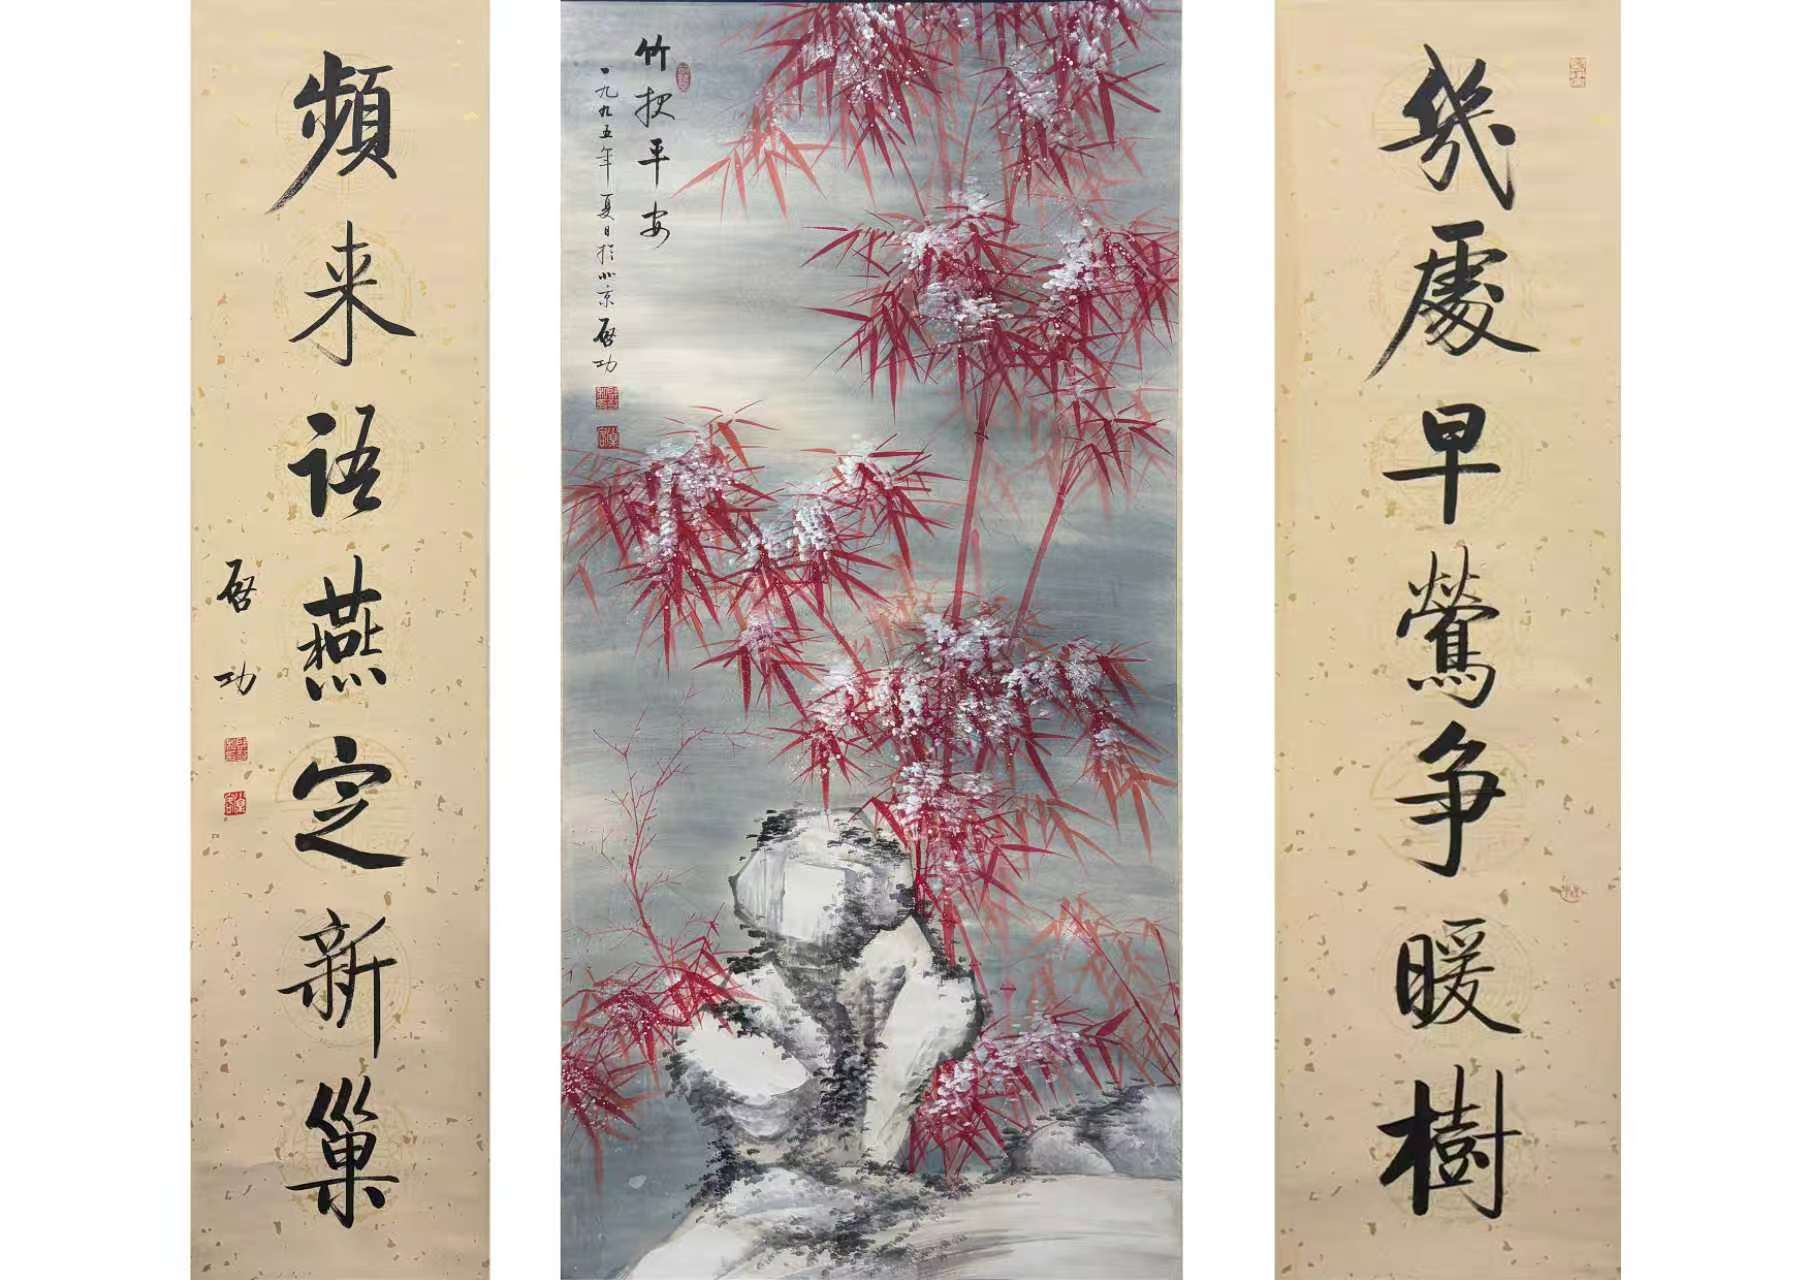 幾處早鶯争暖樹
竹报平安
一九九五年夏日於北京啓功
頻来語燕定新巢
啓功